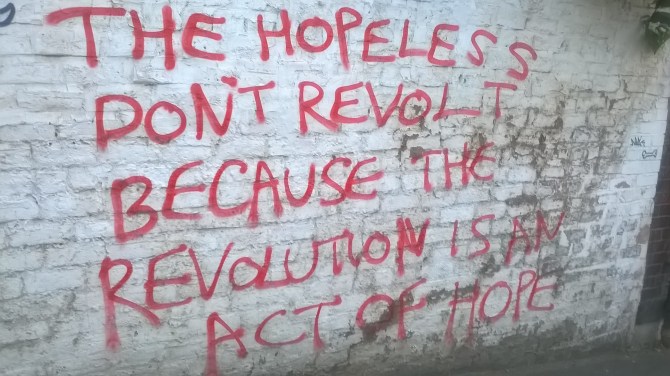 THE HOPELESS
DON'T REVOLT
BECAUSE THE
REVOLUTION IS AN
ACT OF HOPE